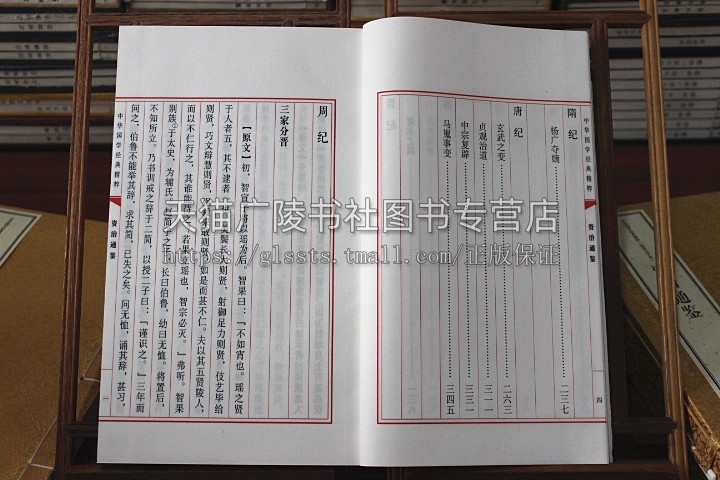 中华国学经典精粹 资治通鉴 四
隋纪
杨广夺嫡……二三七
唐纪
玄武之变……二六三
贞观治道……三一一
中宗复辟……三三一
马嵬事变……三四五
周纪
三家分晋
【原文】初，智宣子将以瑶为后。智果曰：“不如宵也。瑶之贤
于人者五，其不逮者一也。美鬓长大则贤，射御足力则贤，伎艺毕给
则贤，巧文辩慧则贤，强毅果敢则贤，如是而甚不仁。夫以其五贤陵人，
而以不仁行之，其谁能待之？若果立瑶也，智宗必灭。”弗听。智果
别族于太史，为辅氏。赵简子之子，长曰伯鲁，幼曰无恤。将置后，
不知所立。乃书训戒之辞于二简，以授二子曰：“谨识之。”三年而
问之，伯鲁不能举其辞，求其简，已失之矣。问无恤，诵其辞，甚习，
中华国学经典精粹 资治通鉴 一
天猫广陵书社图书专营店
https://glssts.tmall.com/正版保证
通鉴